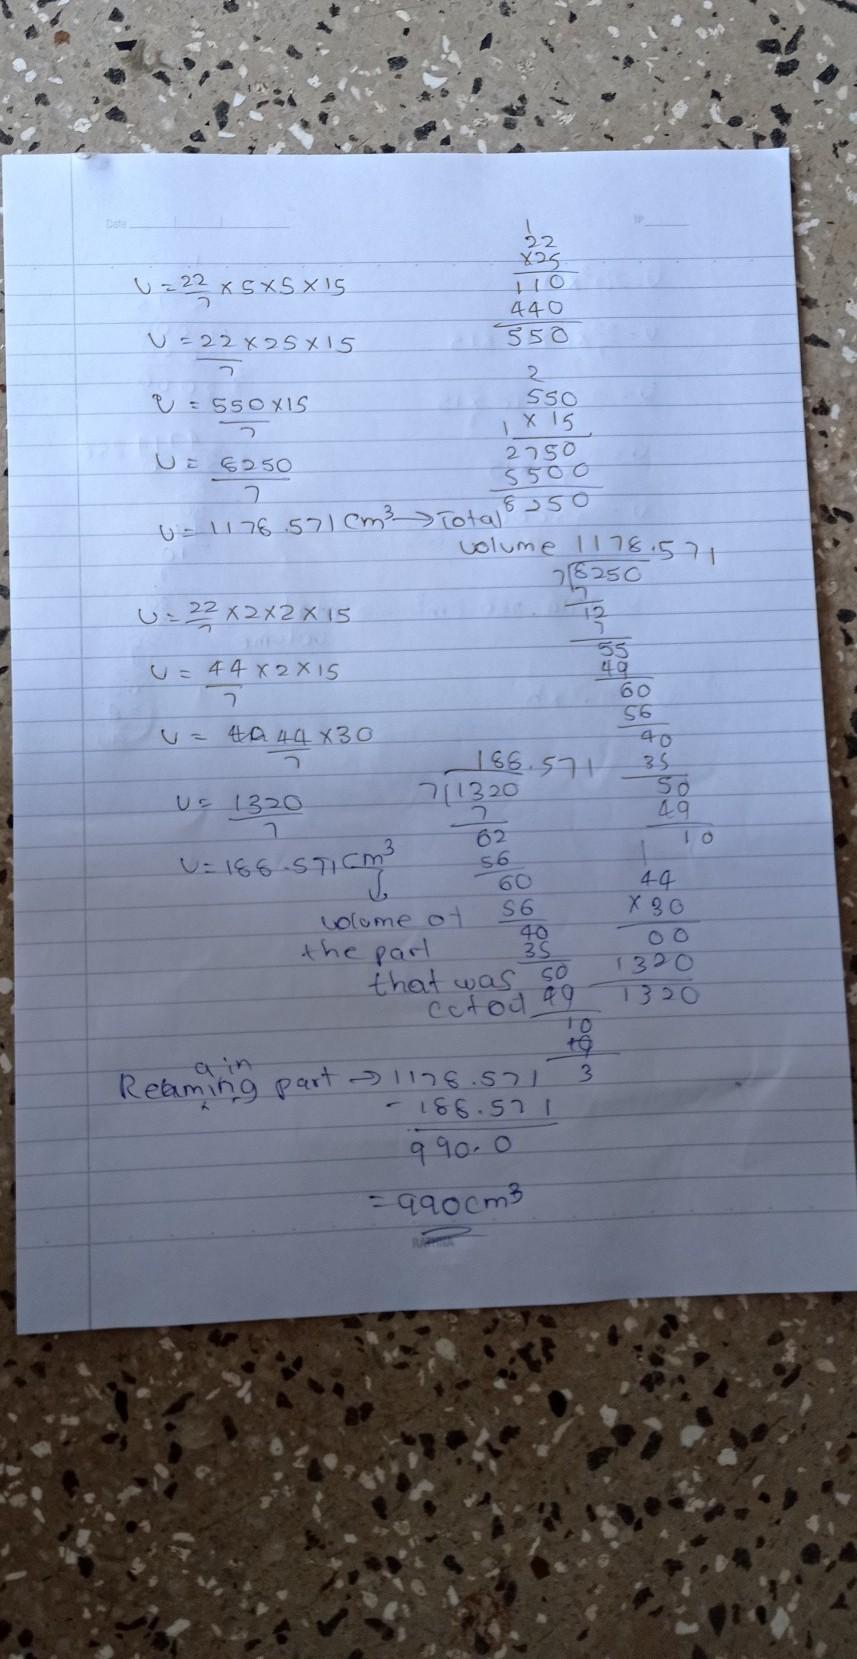 Date
Nº
V = 22/7 × 5 × 5 × 15
V = 22/7 × 25 × 15
V = 550/7 × 15
V = 8250/7
V = 1178.571 cm³ → Total
volume
1
22
×25
110
440
550
2
550
1 × 15
2750
5500
8250
1178.571
7√8250
7
12
7
55
49
60
56
40
35
50
49
10
V = 22/7 × 2 × 2 × 15
V = 44/7 × 2 × 15
V = 44/7 × 30
V = 1320/7
V = 188.571 cm³
↓
volume of
the part
that was
cutout
188.571
7√1320
7
62
56
60
56
40
35
50
49
10
3
1
44
× 30
00
1320
1320
ain
Reaming part → 1178.571
- 188.571
990.0
= 990cm³